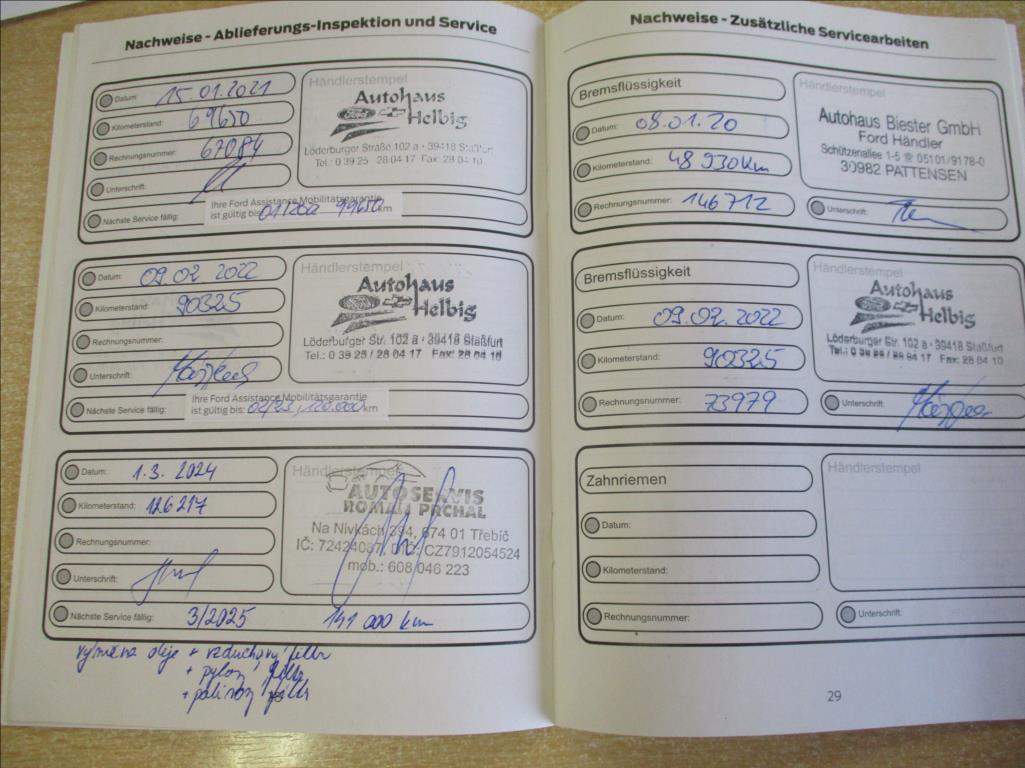 Nachweise - Ablieferungs-Inspektion und Service
Datum: 15.01.2021
Kilometerstand: 69650
Rechnungsnummer: 67084
Unterschrift:
Händlerstempel
Autohaus
Ford
Helbig
Löderburger Straße 102 a · 39418 Staßfurt
Tel.: 0 39 25 28 04 17 Fax 28 04 18
Nächste Service fällig:
Ihre Ford Assistance Mobilitätsgarantie
ist gültig bis: 99650 km
Datum: 09.02.2022
Kilometerstand: 90325
Rechnungsnummer:
Unterschrift:
Händlerstempel
Autohaus
Helbig
Löderburger Str. 102 a · 39418 Staßfurt
Tel.: 0 39 25 / 28 04 17 Fax: 28 04 18
Nächste Service fällig:
Ihre Ford Assistance Mobilitätsgarantie
ist gültig bis: 02/23, 120.000 km
Datum: 1.3. 2024
Kilometerstand: 126217
Rechnungsnummer:
Unterschrift:
Händlerstempel
AUTOSERVIS
ROMAN PRCHAL
Na Nivkách 394, 674 01 Třebíč
IČ: CZ7912054524
mob.: 608 046 223
Nächste Service fällig: 3/2025 141 000 km
výměna oleje + vzduchový filtr
+ pylový filtr
+ filtr
Nachweise - Zusätzliche Servicearbeiten
Bremsflüssigkeit
Datum: 08.01.20
Kilometerstand: 48 930 km
Rechnungsnummer: 146712
Händlerstempel
Autohaus Biester GmbH
Ford Händler
Schützenallee 1-5 ☎ 05101/9178-0
30982 PATTENSEN
Unterschrift:
Bremsflüssigkeit
Datum: 09.02.2022
Kilometerstand: 90325
Rechnungsnummer: 73979
Händlerstempel
Autohaus
Helbig
Löderburger Str. 102 a · 39418 Staßfurt
Tel.: 0 39 25 / 28 04 17 Fax: 28 04 18
Unterschrift:
Zahnriemen
Datum:
Kilometerstand:
Rechnungsnummer:
Händlerstempel
Unterschrift:
29